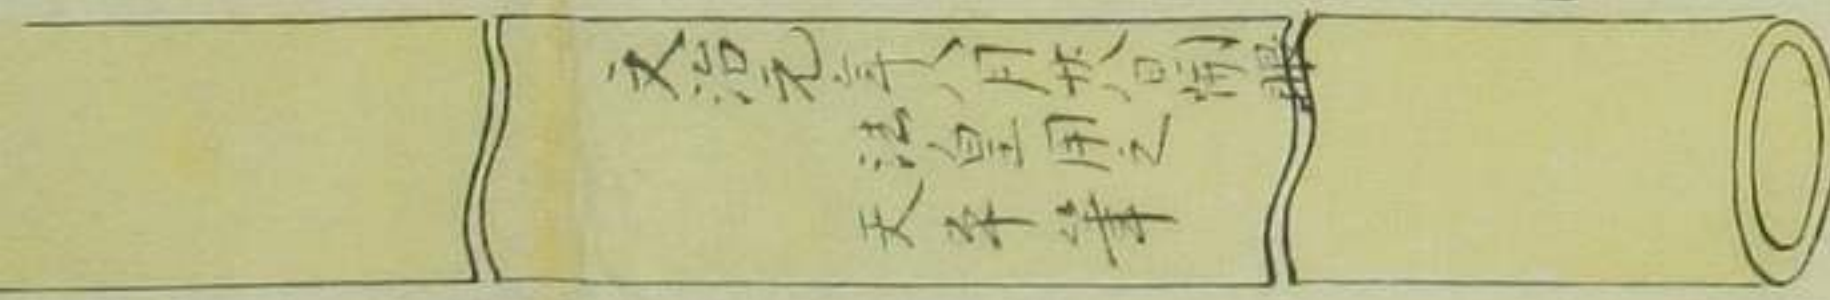 文治元年八月廿八日開眼
法皇用之
天平筆